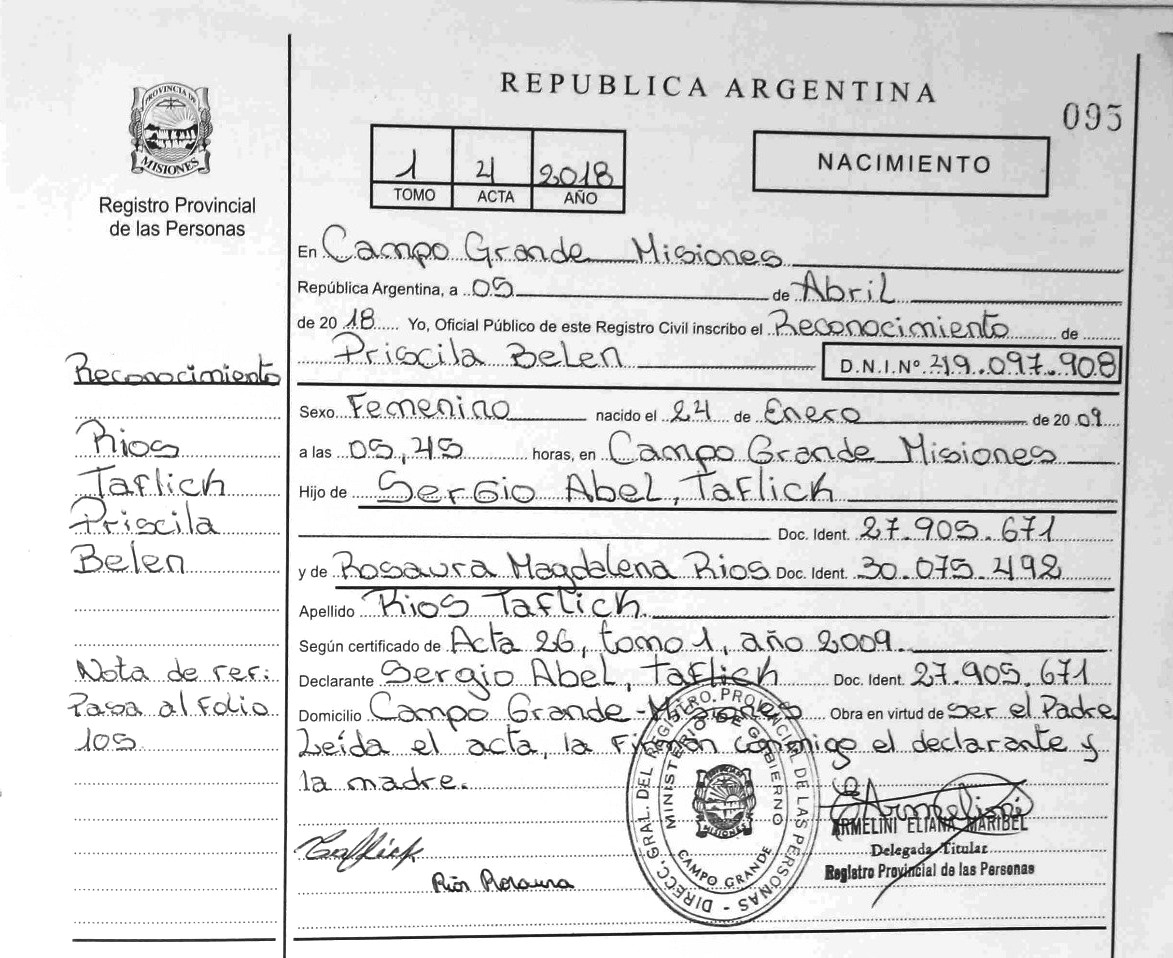 REPUBLICA ARGENTINA
095
PROVINCIA DE
MISIONES
Registro Provincial
de las Personas
1 4 2018
TOMO ACTA AÑO
NACIMIENTO
En Campo Grande Misiones
República Argentina, a 05 de Abril
de 2018 Yo, Oficial Público de este Registro Civil inscribo el Reconocimiento de
Priscila Belen D.N.I.Nº 49.097.908
Sexo Femenino nacido el 24 de Enero de 2009
a las 05,45 horas, en Campo Grande Misiones
Hijo de Sergio Abel, Taflich
Doc. Ident. 27.905.671
y de Rosaura Magdalena Rios Doc. Ident. 30.075.492
Apellido Rios Taflich
Según certificado de Acta 26, tomo 1, año 2009
Declarante Sergio Abel, Taflich Doc. Ident. 27.905.671
Domicilio Campo Grande - Misiones Obra en virtud de ser el Padre
Leída el acta, la firman conmigo el declarante y
la madre.
Reconocimiento
Rios
Taflich
Priscila
Belen
Nota de ref:
Pasa al folio
105
Taflich
Rios Rosaura
DIRECC. GRAL. DEL REGISTRO PROVINCIAL DE LAS PERSONAS
MINISTERIO DE GOBIERNO
MISIONES
CAMPO GRANDE
Armelini
ARMELINI ELIANA MARIBEL
Delegada Titular
Registro Provincial de las Personas